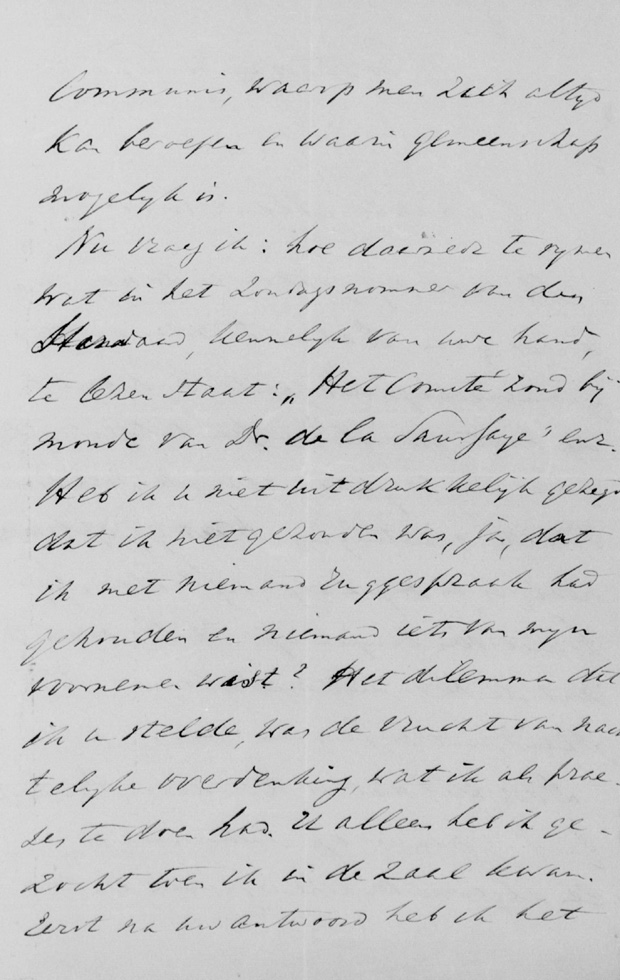 Communis, waarop men zich altyd
kan beroepen en waarin gemeenschap
mogelyk is.
Nu vraag ik: hoe daarmede te rymen
wat in het Zondagsnommer van den
Standaard, kennelyk van uwe hand,
te lezen staat: „Het Comité zond bij
monde van Dr. de la Saussaye" enz.
Heb ik u niet uitdrukkelijk gezegd
dat ik niet gezonden was, ja, dat
ik met niemand ruggespraak had
gehouden en niemand iets van myn
voornemen wist? Het dilemma dat
ik u stelde, was de vrucht van nach
telyke overdenking, wat ik als prae-
ses te doen had. U alleen heb ik ge-
zocht toen ik in de zaal kwam.
Eerst na uw antwoord heb ik het